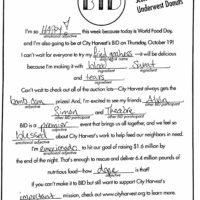 BID
Underwest Donuts
I'm so HAPPY! this week because today is World Food Day,
emotional adjective
and I'm also going to be at City Harvest's BID on Thursday, October 19!
I can't wait for everyone to try my fried goodness—it will be delicious
because I'm making it with blood, sweat
and tears.
Can't wait to check out all of the auction lots—City Harvest always gets the
bomb.com prizes! And, I'm excited to see my friends
adjective
and Theatre
BID is a premier event that brings us all together, and we feel so
adjective
blessed about City Harvest's work to help feed our neighbors in need.
emotional adjective
I'm to hit our goal of raising $1.6 million by
emotional adjective
the end of the night. That's enough to rescue and deliver 6.4 million pounds of
nutritious food—how dope is that!
adjective
If you can't make it to BID but still want to support City Harvest's
important mission, check out cityharvest.org to learn more.
adjective